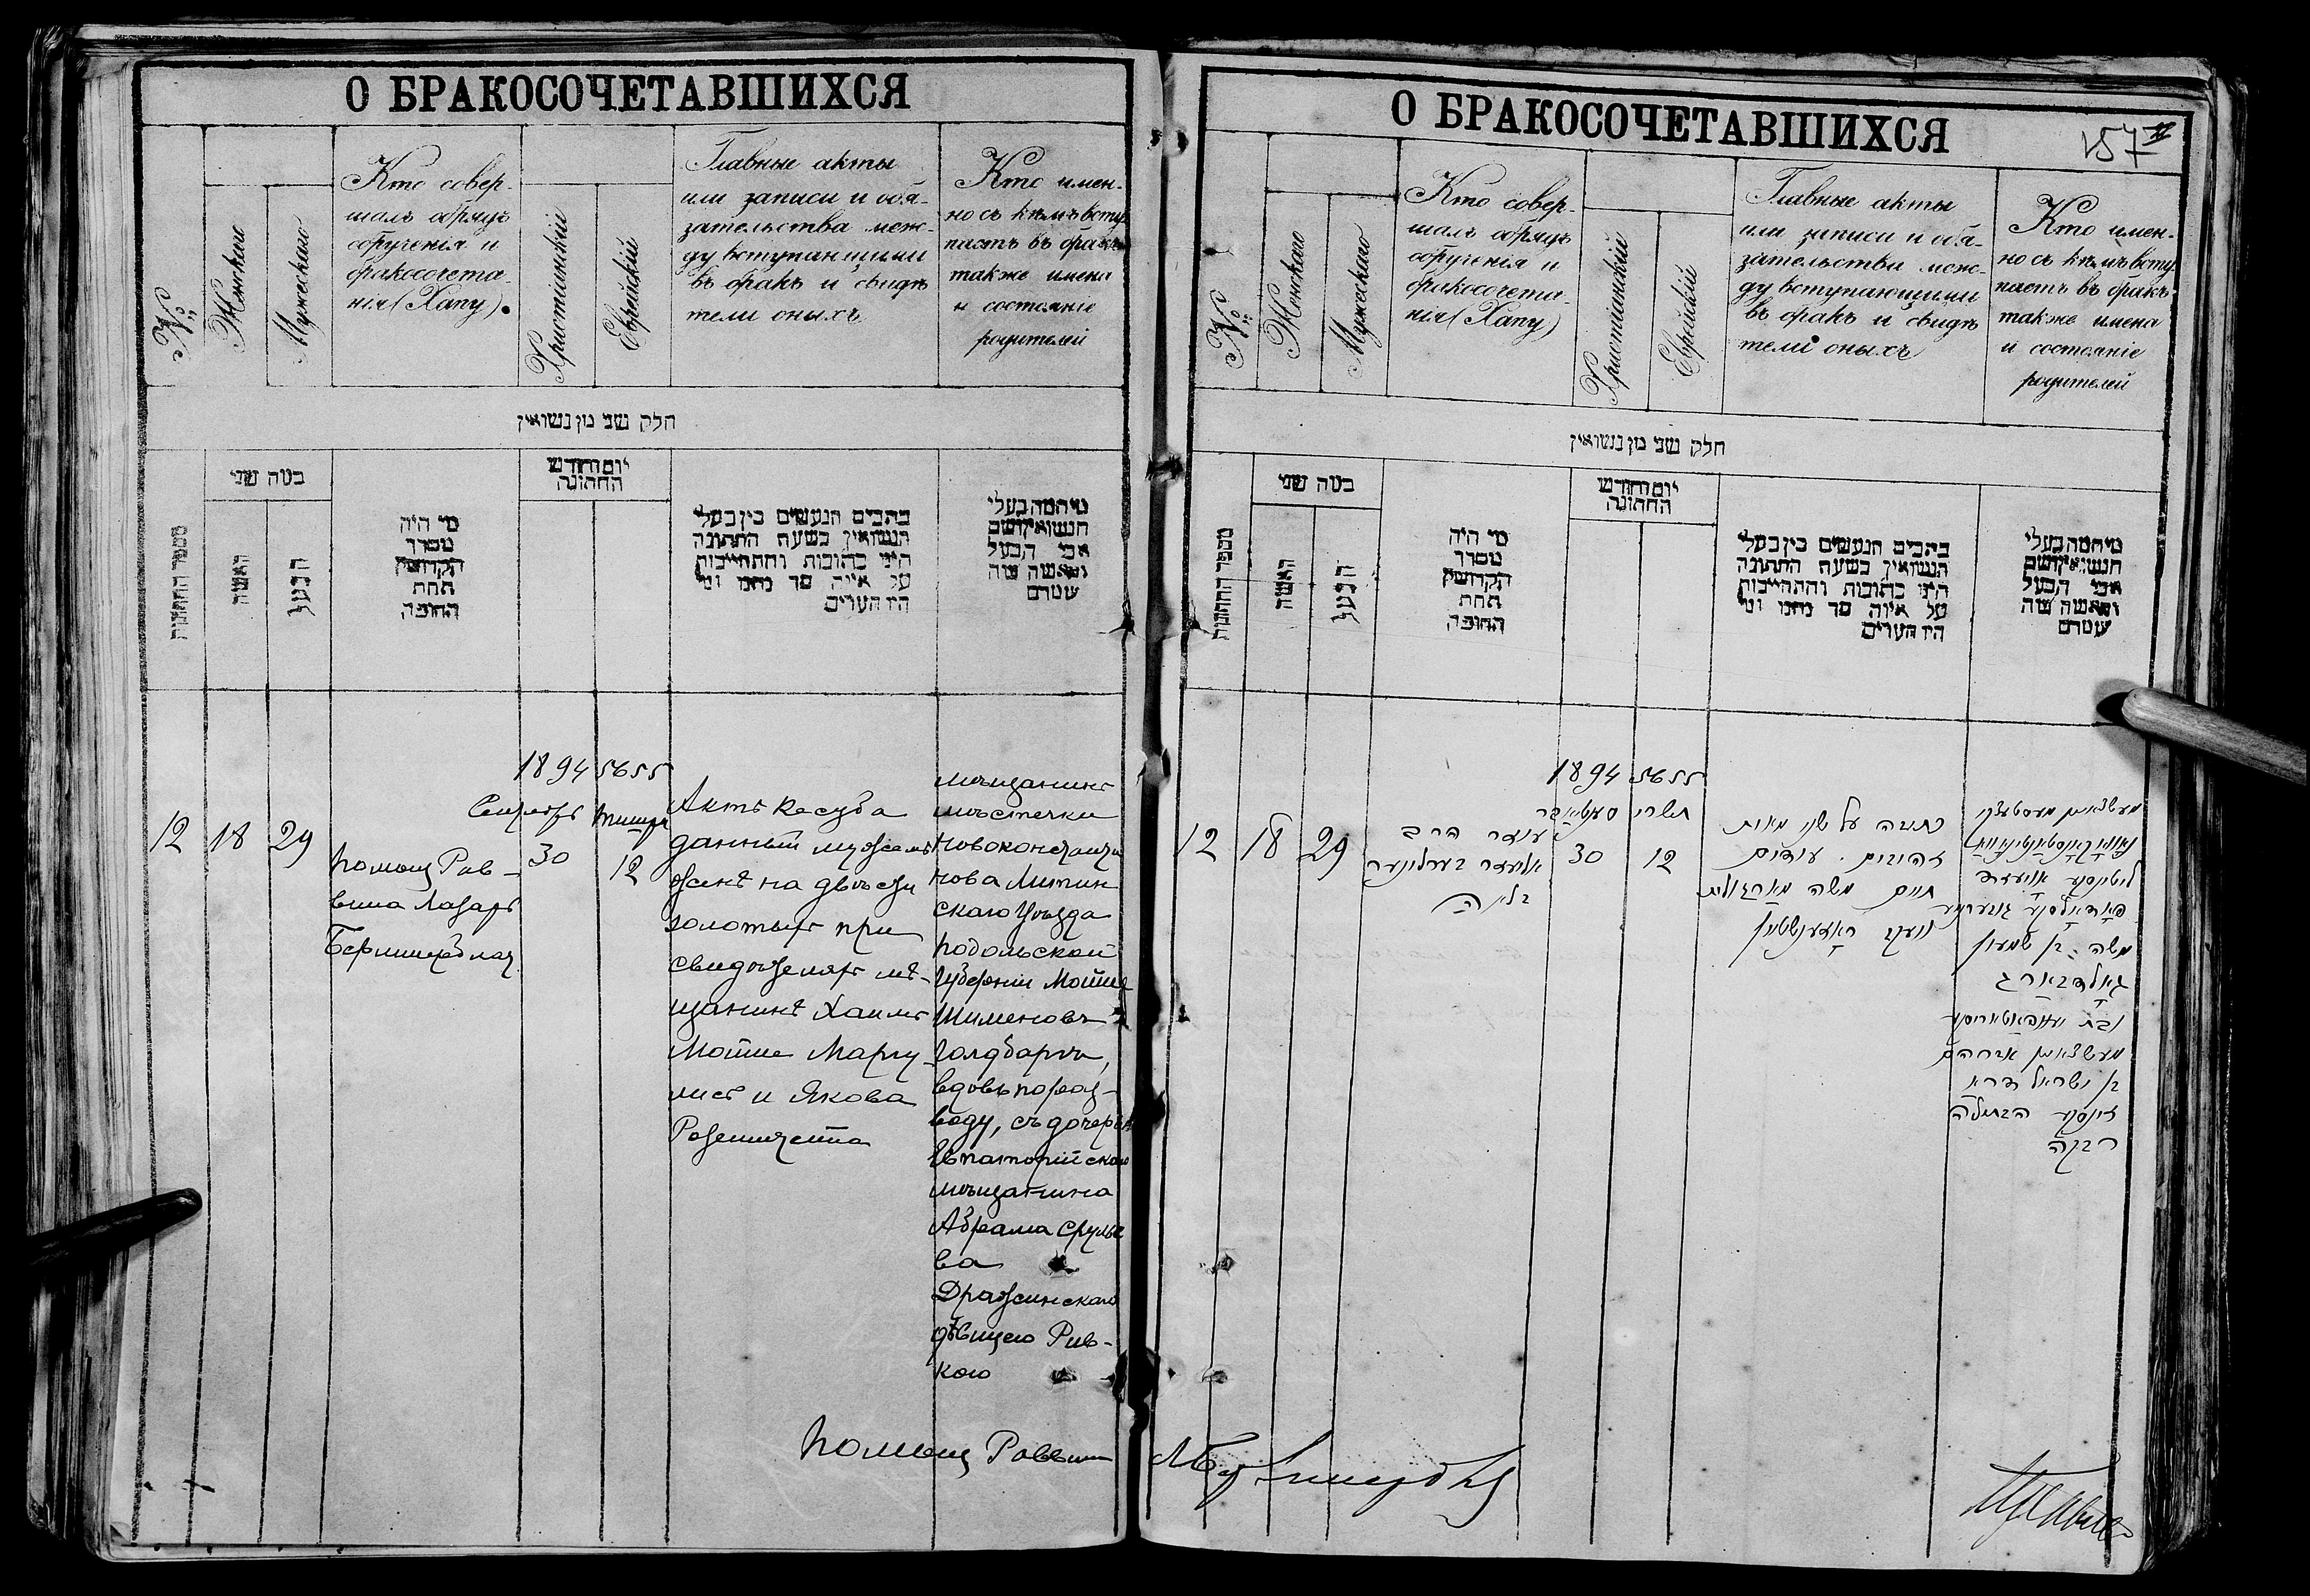 О БРАКОСОЧЕТАВШИХСЯ
№
Женского
Мужескаго
Кто совер-
шалъ обрядъ
обрученія и
бракосочета-
нія (Хапу).
Христіанскій
Еврейскій
Главные акты
или записи и обя-
зательства меж-
ду вступающими
въ бракъ и свидѣ
тели оныхъ
Кто имен-
но съ кѣмъ всту
паетъ въ бракъ
также имена
и состояніе
родителей
חלק שני מן נשואין
מספר החתונות
כמה שני
האשה
הבעל
מי היה
מסדר
הקדושין
תחת
החופה
יום וחודש
החתונה
כתבים הנעשים בין בעלי
הנשואין בשעת החתונה
היינו כתובות והתחייבות
על איזה סך נתנו ומי
היו העדים
מי המה בעלי
הנשואין ושם
אבי הבעל
והאשה מה
שמם
12
18
29
помощ Рав-
вина Лазарь
1894
Сентябрь
30
5655
тишри
12
Актъ кесуба
данный мужемъ
женѣ на двѣсти
золотыхъ при
свидѣтеляхъ мѣ-
щанинѣ Хаимъ
Мойше Маргу-
лисъ и Якова
Розенштейна
мѣщанинъ
мѣстечки
Новоконстанти
нова Литин
скаго уѣзда
Подольской
Губерніи Мойше
Шименовъ
Голдбаргъ,
вдовъ по раз-
воду, съ дочерью
Евпаторійскаго
мѣщанина
Абрама Срулье
ва
Дражинскаго
дѣвицею Рив-
кою
помощ Раввин
О БРАКОСОЧЕТАВШИХСЯ
157
№
Женскаго
Мужескаго
Кто совер-
шалъ обрядъ
обрученія и
бракосочета-
нія (Хапу)
Христіанскій
Еврейскій
Главные акты
или записи и обя-
зательства меж-
ду вступающими
въ бракъ и свидѣ
тели оныхъ
Кто имен-
но съ кѣмъ всту
паетъ въ бракъ
также имена
и состояніе
родителей
חלק שני מן נשואין
מספר החתונות
כמה שני
האשה
הבעל
מי היה
מסדר
הקדושין
תחת
החופה
יום וחודש
החתונה
כתבים הנעשים בין בעלי
הנשואין בשעת החתונה
היינו כתובות והתחייבות
על איזה סך נתנו ומי
היו העדים
מי המה בעלי
הנשואין ושם
אבי הבעל
והאשה מה
שמם
12
18
29
עוזר הרב
1894
30
5655
תשרי
12
כתובה על שני מאות
זהובים . עידים
חיים משה מארגולית
יעקב ראזענשטיין
משה בן שמעון
גאלדבארג
מעשצאנין אברהם
בן ישראל דרא
זינסקי הבתולה
רבקה